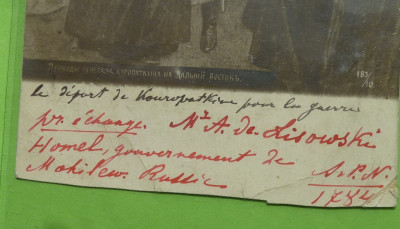 Проводы генерала Куропаткина на Дальній Востокъ.
183/10
le départ de Kouropatkine pour la guerre
pr. échange. Mr A. de Lisowski
Homel, gouvernement de
Mohilew. Russie
A.P.N.
1784